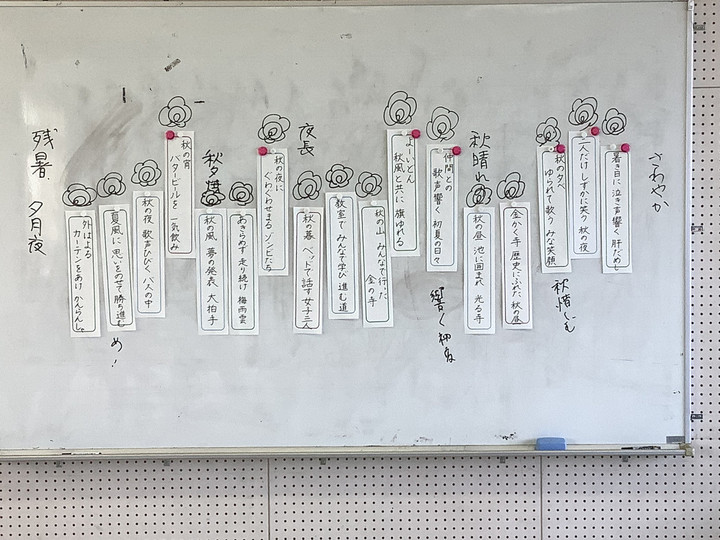 さわやか
暑き日に 泣き声響く 肝だめし
一人だけ しずかに笑う 秋の夜
秋の夕べ
ゆられて歌う みな笑顔
秋惜しむ
金かく寺 歴史にふれた 秋の昼
秋晴れ
秋の昼 池に囲まれ 光る寺
仲間との
歌声響く 初夏の日々
響く
よーいどん
秋風と共に 旗ゆれる
秋の山 みんなで行った
金の寺
教室で みんなで学び 進む道
夜長
秋の暮 ベッドで話す 女子三人
秋の夜に
ぐわぐわせまる ゾンビたち
あきらめず 走り続け 梅雨雲
秋の風 夢の発表 大拍手
秋の宵
バタービールを 一気飲み
秋の夜 歌声ひびく バスの中
夏風に 思いをのせて 勝ち進む
め!
外はよる
カーテンをあけ かんらんしゃ
残暑 夕月夜